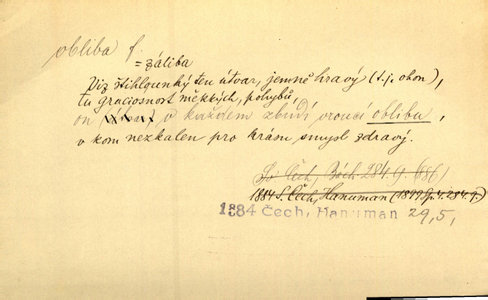 obliba f.
= záliba
Viz štíhlounký ten útvar, jemně hravý (t. j. ohon),
tu graciosnost měkkých pohybů,
on v každém zbudí vroucí oblibu,
v kom nezkalen pro krásu smysl zdravý.
Sv. Čech,
1884 S. Čech, Hanuman
1884 Čech, Hanuman 29,5,